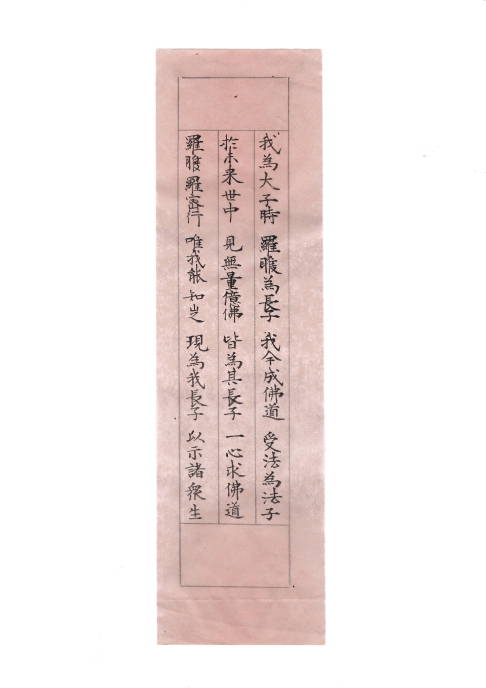 我為大子時 羅睺為長子 我今成佛道 受法為法子
於未来世中 見無量億佛 皆為其長子 一心求佛道
羅睺羅密行 唯我能知之 現為我長子 以示諸衆生